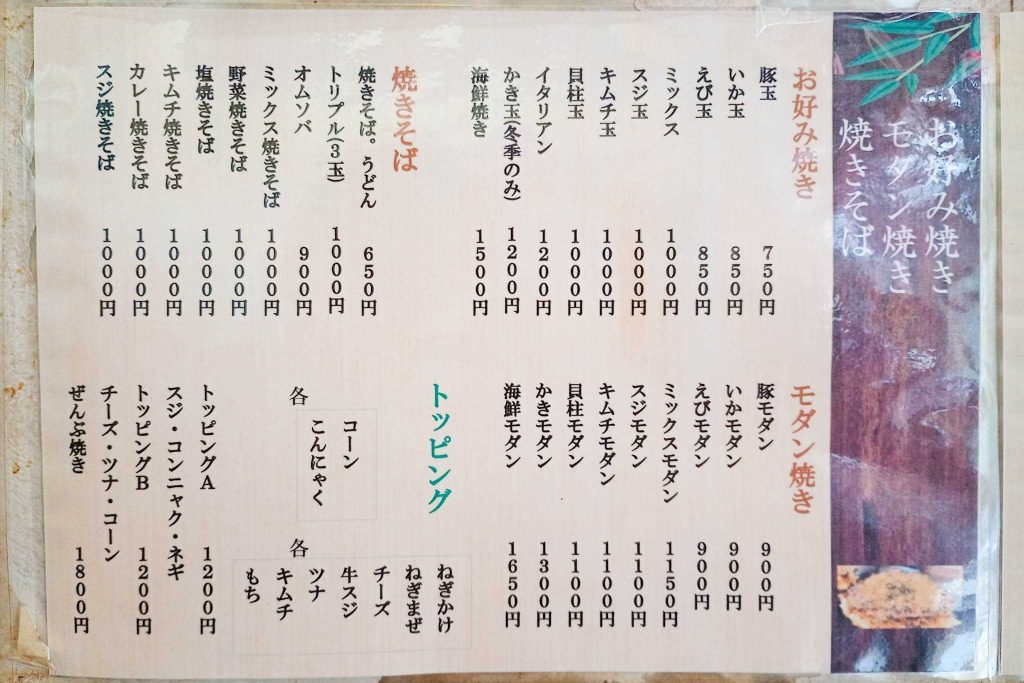 お好み焼き
モダン焼き
焼きそば
お好み焼き
豚玉 750円
いか玉 850円
えび玉 850円
ミックス 1000円
スジ玉 1000円
キムチ玉 1000円
貝柱玉 1000円
イタリアン 1200円
かき玉(冬季のみ) 1200円
海鮮焼き 1500円
焼きそば
焼きそば。うどん 650円
トリプル(3玉) 1000円
オムソバ 900円
ミックス焼きそば 1000円
野菜焼きそば 1000円
塩焼きそば 1000円
キムチ焼きそば 1000円
カレー焼きそば 1000円
スジ焼きそば 1000円
モダン焼き
豚モダン 900円
いかモダン 900円
えびモダン 900円
ミックスモダン 1150円
スジモダン 1100円
キムチモダン 1100円
貝柱モダン 1100円
かきモダン 1300円
海鮮モダン 1650円
トッピング
コーン
こんにゃく
各
ねぎかけ
ねぎまぜ
チーズ
牛スジ
ツナ
キムチ
もち
各
トッピングA 1200円
スジ・コンニャク・ネギ
トッピングB 1200円
チーズ・ツナ・コーン
ぜんぶ焼き 1800円